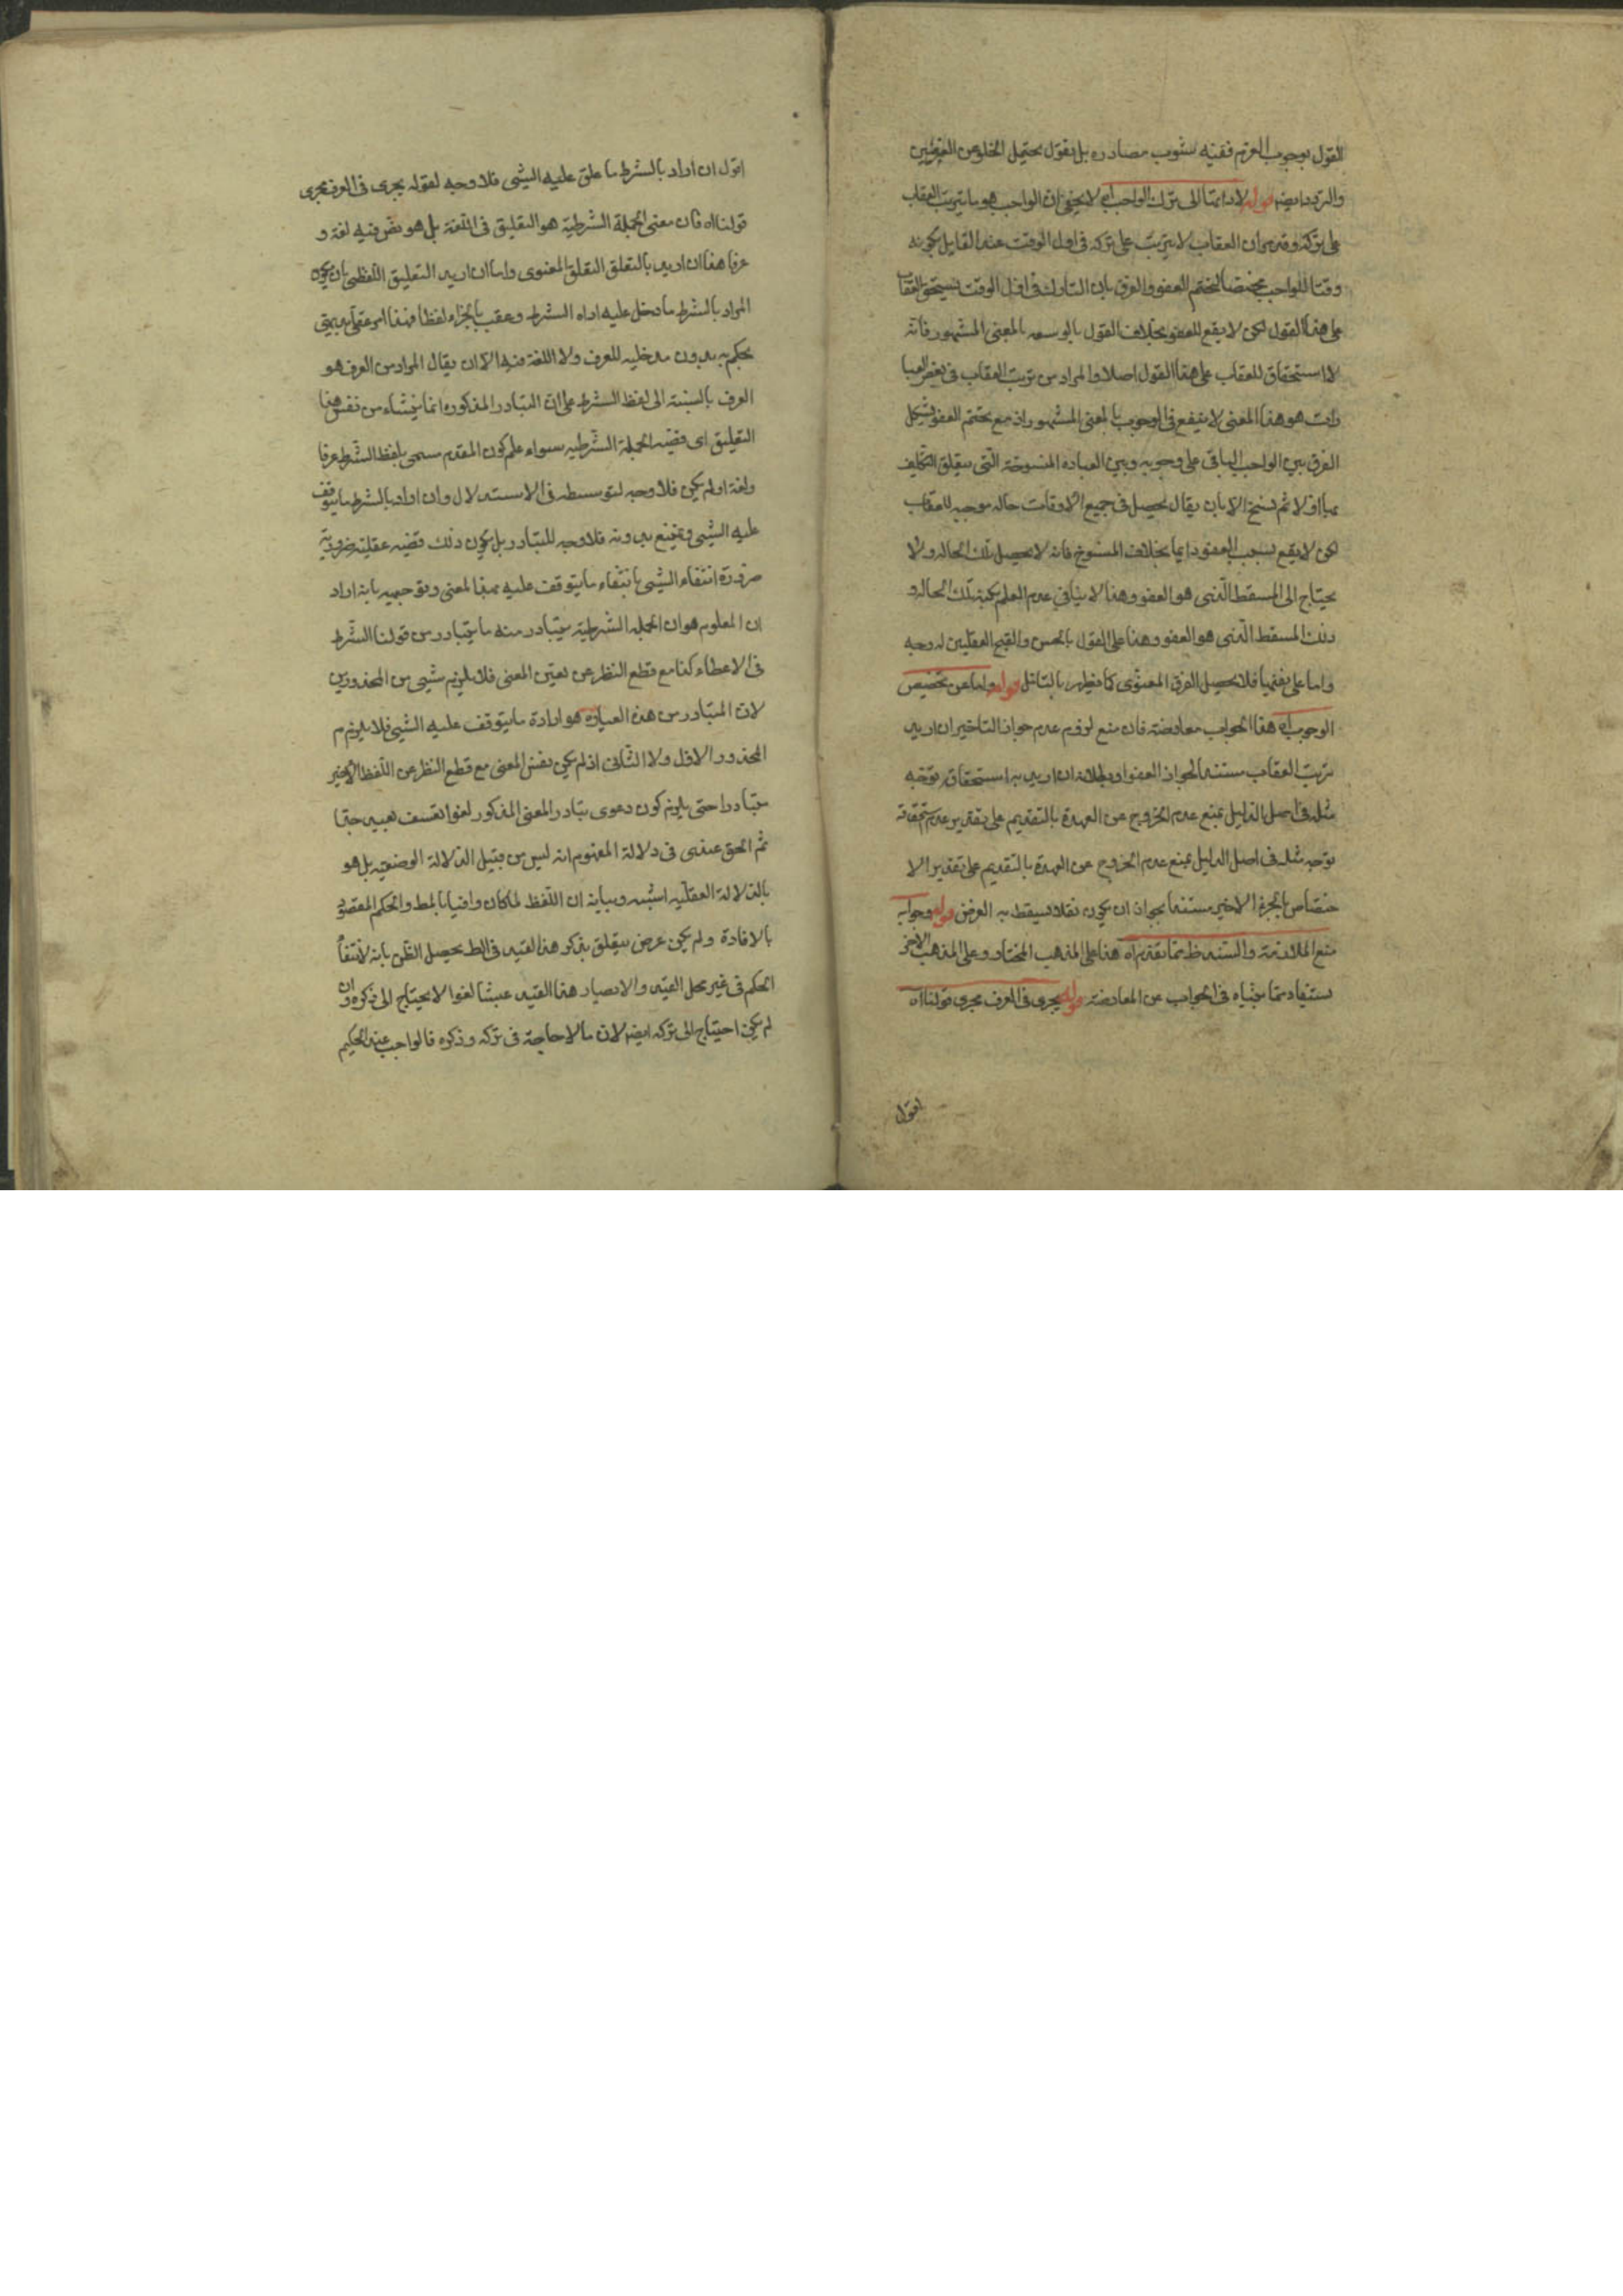 القول بوجوب العزم ففيه شوب مصادره بل يقول يحتمل الخلو عن العزمين
والتردد ايضا قوله لاداءتها الى ترك الواجب اه لا يخفى ان الواجب هو ما يترتب العقاب
على تركه وقد مر ان العقاب لا يترتب على تركه في اول الوقت عند القايل بكونه
وقتا للواجب مختصا لتحتم العفو والفرق بان التارك في اول الوقت يستحق العقاب
على هذا القول لكن لا يقع للعفو بخلاف القول بالوسعه بالمعنى المشهور فانه
لا استحقاق للعقاب على هذا القول اصلا والمراد من ترتب العقاب في بعض العبا
رات هو هذا المعنى لا ينفع في الوجوب بالمعنى المشهور اذ مع تحتم العفو يشكل
الفرق بين الواجب الباقي على وجوبه وبين العباده المنسوخة التي يتعلق التكليف
بها اولا ثم نسخ الا بان يقال يحصل في جميع الاوقات حاله موجبه للعقاب
لكن لا يقع بسبب العفو دايما بخلاف المنسوخ فانه لا يحصل تلك الحاله ولا
يحتاج الى المسقط الذي هو العفو وهذا لا ينافي عدم العلم بكنه تلك الحاله و
ذلك المسقط الذي هو العفو وهذا على القول بالحسن والقبح العقليين له وجه
واما على نفيهما فلا يحصل الفرق المعنوي كما يظهر بالتامل قوله واما عن تخصيص
الوجوب اه هذا الجواب معارضة فان منع لزوم عدم جواز التاخير ان اريد
ترتب العقاب مستندا لجواز العفو او بطلانه ان اريد به استحقاق توجه
مثله في اصل الدليل بمنع عدم الخروج عن العهدة بالتقديم على تقدير عدم استحقاقه
توجه مثله في اصل الدليل بمنع عدم الخروج عن العهدة بالتقديم على تقدير الا
ختصاص بالجزء الاخير مستندا بجواز ان يكون نفلا يسقط به الفرض قوله وجوابه
منع الملازمة والسند ظ مما تقدم اه هذا على المذهب المختار وعلى المذهب الاخر
يستفاد مما بيناه في الجواب عن المعارضة قوله يجرى في العرف مجرى قولنا اه
اقول
اقول ان اراد بالشرط ما علق عليه الشيى فلا وجه لقوله يجرى في العرف مجرى
قولنا اه فان معنى الجملة الشرطية هو التعليق في اللغة بل هو نص فيه لغة و
عرفا هذا ان اريد بالتعلق التعلق المعنوى واما ان اريد التعليق اللفظى بان يكون
المراد بالشرط ما دخل عليه اداه الشرط وعقب بالجزاء لفظا فهذا امر عقلى بديهى
يحكم به بدون مدخليه للعرف ولا اللغة فيه الا ان يقال المراد من العرف هو
العرف بالنسبة الى لفظ الشرط على ان المتبادر المذكور انما ينشاء من نفس هذا
التعليق اى قضيه الجملة الشرطيه سواء علم كون المقدم مسمى بلفظ الشرط عرفا
ولغة او لم يكن فلا وجه لتوسيطه في الاستدلال وان اراد بالشرط ما يتوقف
عليه الشيى ويمتنع بدونه فلا وجه للتبادر بل يكون ذلك قضيه عقلية ضرورية
ضرورة انتفاء الشيى بانتفاء ما يتوقف عليه بهذا المعنى وتوجيهه بانه اراد
ان المعلوم هو ان الجمله الشرطية يتبادر منه ما يتبادر من قولنا الشرط
في الاعطاء كذا مع قطع النظر عن تعيين المعنى فلا يلزم شيى من المحذورين
لان المتبادر من هذه العبارة هو ارادة ما يتوقف عليه الشيى فلا يلزم م
المحذور الاول ولا الثاني اذ لم يكن نفس المعنى مع قطع النظر عن اللفظ الاخير
متبادرا حتى يلزم كون دعوى تبادر المعنى المذكور لغوا تعسف بعيد جدا
ثم الحق عندى في دلالة المفهوم انه ليس من قبيل الدلالة الوضعيه بل هو
بالدلالة العقليه اشبه وبيانه ان اللفظ لما كان وافيا بالمط والحكم المقصود
بالافادة ولم يكن غرض يتعلق بذكر هذا القيد في الط يحصل الظن بانه لانتفاء
الحكم في غير محل القيد والا لصار هذا القيد عبثا لغوا لا يحتاج الى ذكره وان
لم يكن احتياج الى تركه ايضا لان ما لا حاجة في تركه وذكره فالواجب عند الحكيم